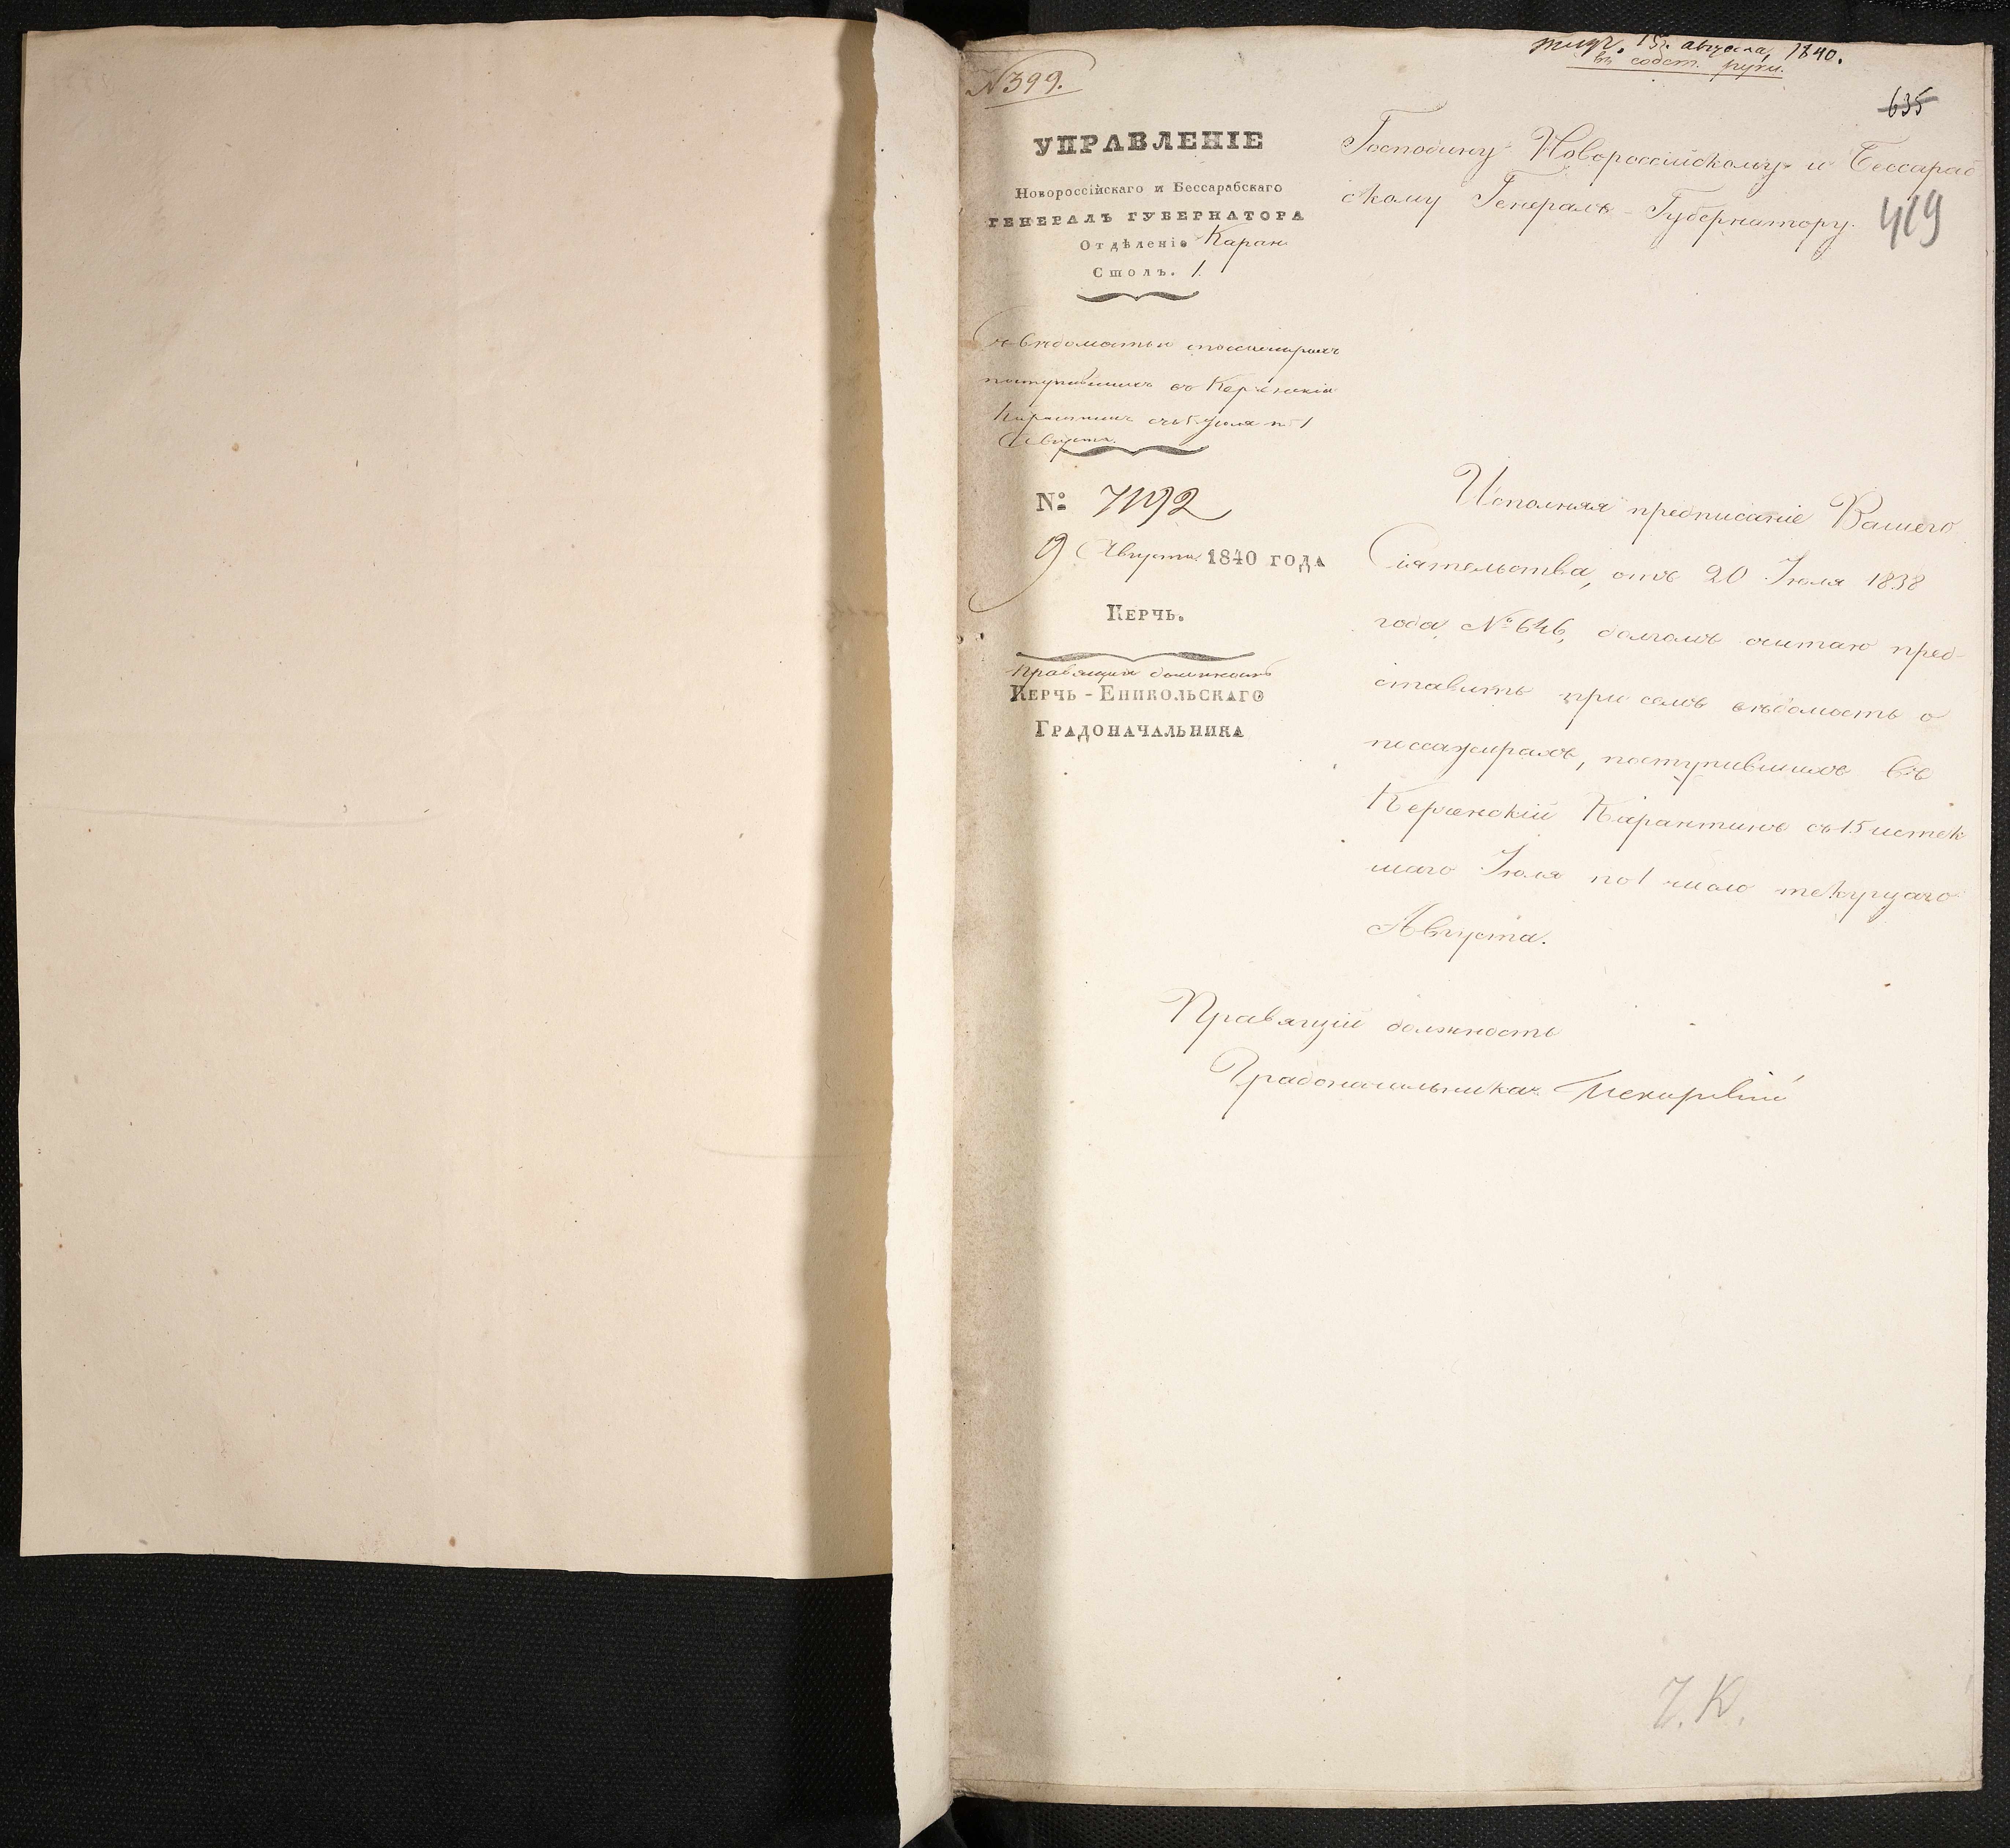 15. августа, 1840.
въ собст. руки.
N 399.
635
419
УПРАВЛЕНІЕ
Новороссійскаго и Бессарабскаго
ГЕНЕРАЛЪ ГУБЕРНАТОРА
Отдѣленіе Каран.
Столъ. 1.
Съ вѣдомостью о пассажирахъ
поступившихъ въ Керченскій
Карантинъ съ 15 Іюля по 1
Августа.
№ 7192
9 Августа 1840 ГОДА
КЕРЧЬ.
Правящій должность
КЕРЧЬ-ЕНИКОЛЬСКАГО
ГРАДОНАЧАЛЬНИКА
Господину Новороссійскому и Бессараб
скому Генералъ-Губернатору.
Исполняя предписаніе Вашего
Сіятельства, отъ 20 Іюля 1838
года № 646, долгомъ считаю пред-
ставить при семъ вѣдомость о
пассажирахъ, поступившихъ въ
Керченскій Карантинъ съ 15 истек
шаго Іюля по 1 число текущаго
Августа.
Правящій должность
Градоначальника